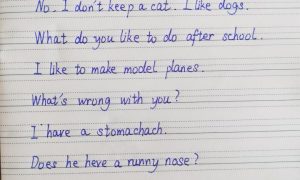 No. I don't keep a cat. I like dogs.
What do you like to do after school.
I like to make model planes.
What's wrong with you?
I have a stomachach.
Does he heve a runny nose?